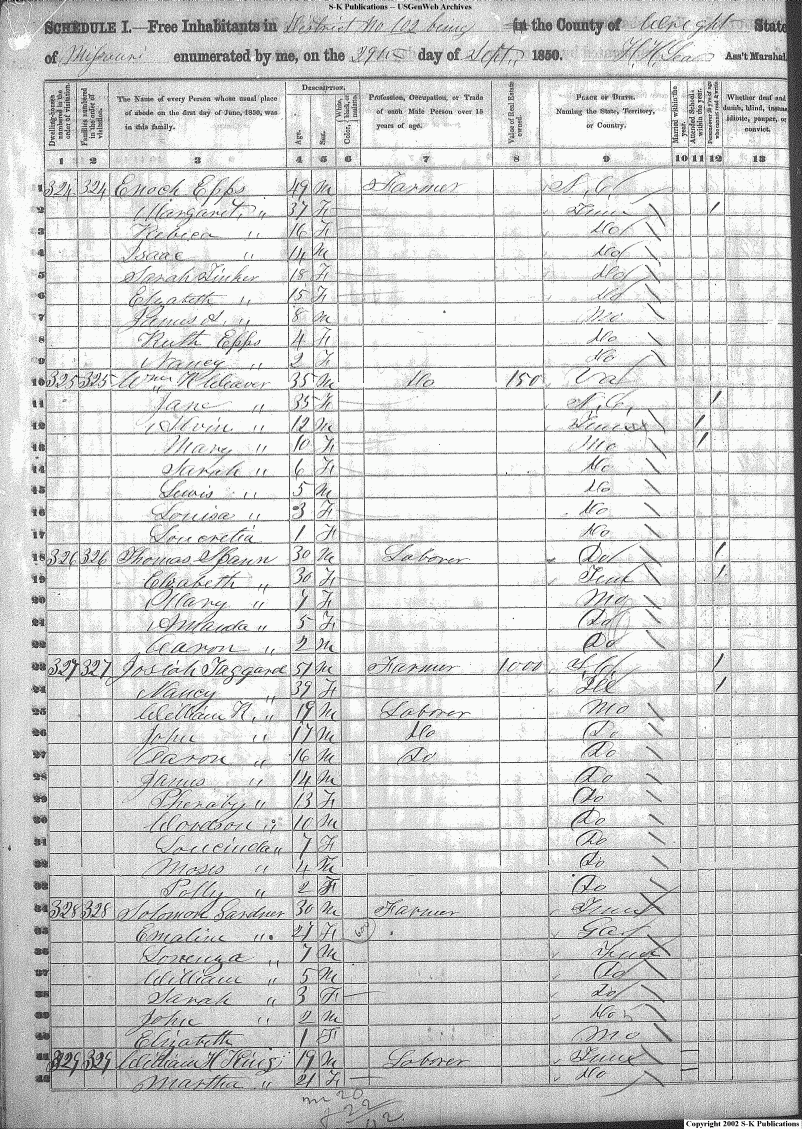 S-K Publications – USGenWeb Archives
SCHEDULE I.—Free Inhabitants in District No 102 being in the County of Wright State
of Missouri enumerated by me, on the 29th day of Sept, 1850. Ass't Marshal
Dwelling-houses numbered in the order of visitation.
Families numbered in the order of visitation.
The Name of every Person whose usual place of abode on the first day of June, 1850, was in this family.
Description.
Age.
Sex.
Color, White, black, or mulatto.
Profession, Occupation, or Trade of each Male Person over 15 years of age.
Value of Real Estate owned.
Place of Birth. Naming the State, Territory, or Country.
Married within the year.
Attended School within the year.
Whether deaf and dumb, blind, insane, idiotic, pauper, or convict.
1 2 3 4 5 6 7 8 9 10 11 12 13
1 324 324 Enoch Epps 49 M Farmer N.C.
2 Margaret " 37 F Tenn /
3 " 16 F Do
4 Isaac " 14 M Do
5 Sarah Tinker 18 F Do
6 Elizabeth " 15 F Do
7 James A. " 8 M Mo
8 Ruth Epps 4 F Do
9 Nancy " 2 F Do
10 325 325 Wm K Weaver 35 M Do 150 Va
11 Jane " 35 F N.C. /
12 Alvin " 12 M Tenn /
13 Mary " 10 F Mo /
14 Sarah " 6 F Do
15 Lewis " 5 M Do
16 Louisa " 3 F Do
17 Loucretia 1 F Do
18 326 326 Thomas Spann 30 M Laborer Do /
19 Elizabeth " 30 F Tenn /
20 Mary " 7 F Mo
21 Amanda " 5 F Do
22 Aaron " 2 M Do
23 327 327 Josiah Taggard 51 M Farmer 1000 /
24 Nancy " 39 F Ill /
25 William N. " 19 M Laborer Mo
26 John " 17 M Do Do
27 Aaron " 16 M Do Do
28 James " 14 M Do
29 Pheraby " 13 F Do
30 Woodson " 10 M Do
31 Loucinda " 7 F Do
32 Moses " 4 M Do
33 Polly " 2 F Do
34 328 328 Solomon Gardner 30 M Farmer Tenn
35 Emaline " 27 F Geo
36 Lorenza " 7 M Tenn
37 William " 5 M Do
38 Sarah " 3 F Do
39 John " 2 M Do
40 Elizabeth 1 F Mo
41 329 329 William H King 19 M Laborer Tenn
42 Martha " 21 F Do
m 20
f 22/42
Copyright 2002 S-K Publications